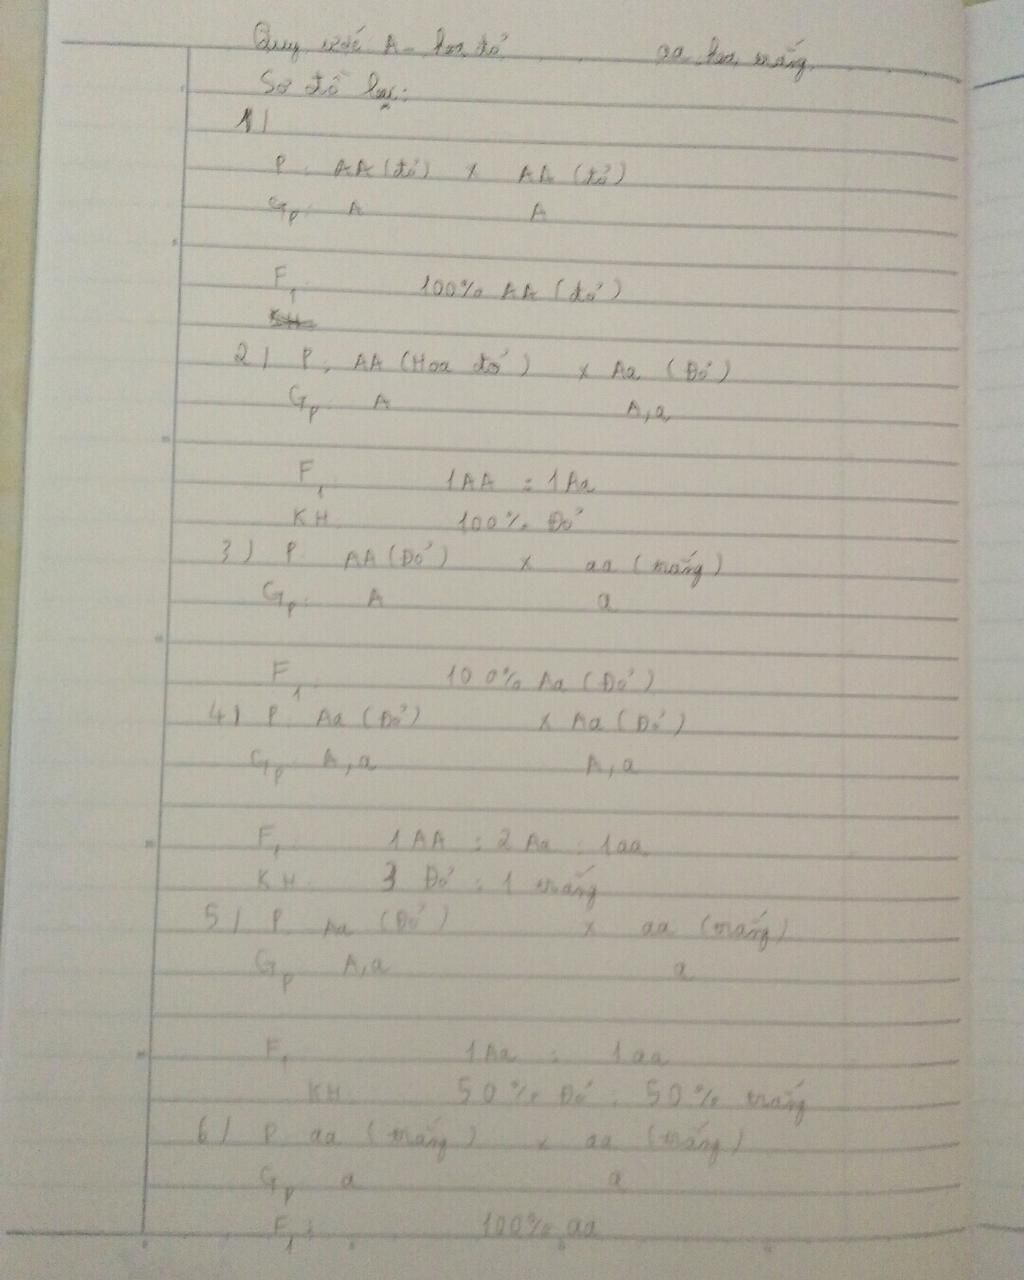 Quy ước A- hoa đỏ aa hoa trắng
Sơ đồ lai:
1)
P. AA (đỏ) x AA (đỏ)
Gp. A A
F1. 100% AA (đỏ)
2) P. AA (Hoa đỏ) x Aa (Đỏ)
Gp A A,a
F1. 1AA : 1Aa
KH. 100% Đỏ
3) P. AA (Đỏ) x aa (trắng)
Gp. A a
F1. 100% Aa (Đỏ)
4) P. Aa (Đỏ) x Aa (Đỏ)
Gp A,a A,a
F1. 1AA : 2 Aa : 1aa
KH. 3 Đỏ : 1 trắng
5) P. Aa (Đỏ) x aa (trắng)
Gp A,a a
F1 1Aa : 1aa
KH. 50% Đỏ : 50% trắng
6) P aa (trắng) x aa (trắng)
Gp a a
F1: 100% aa